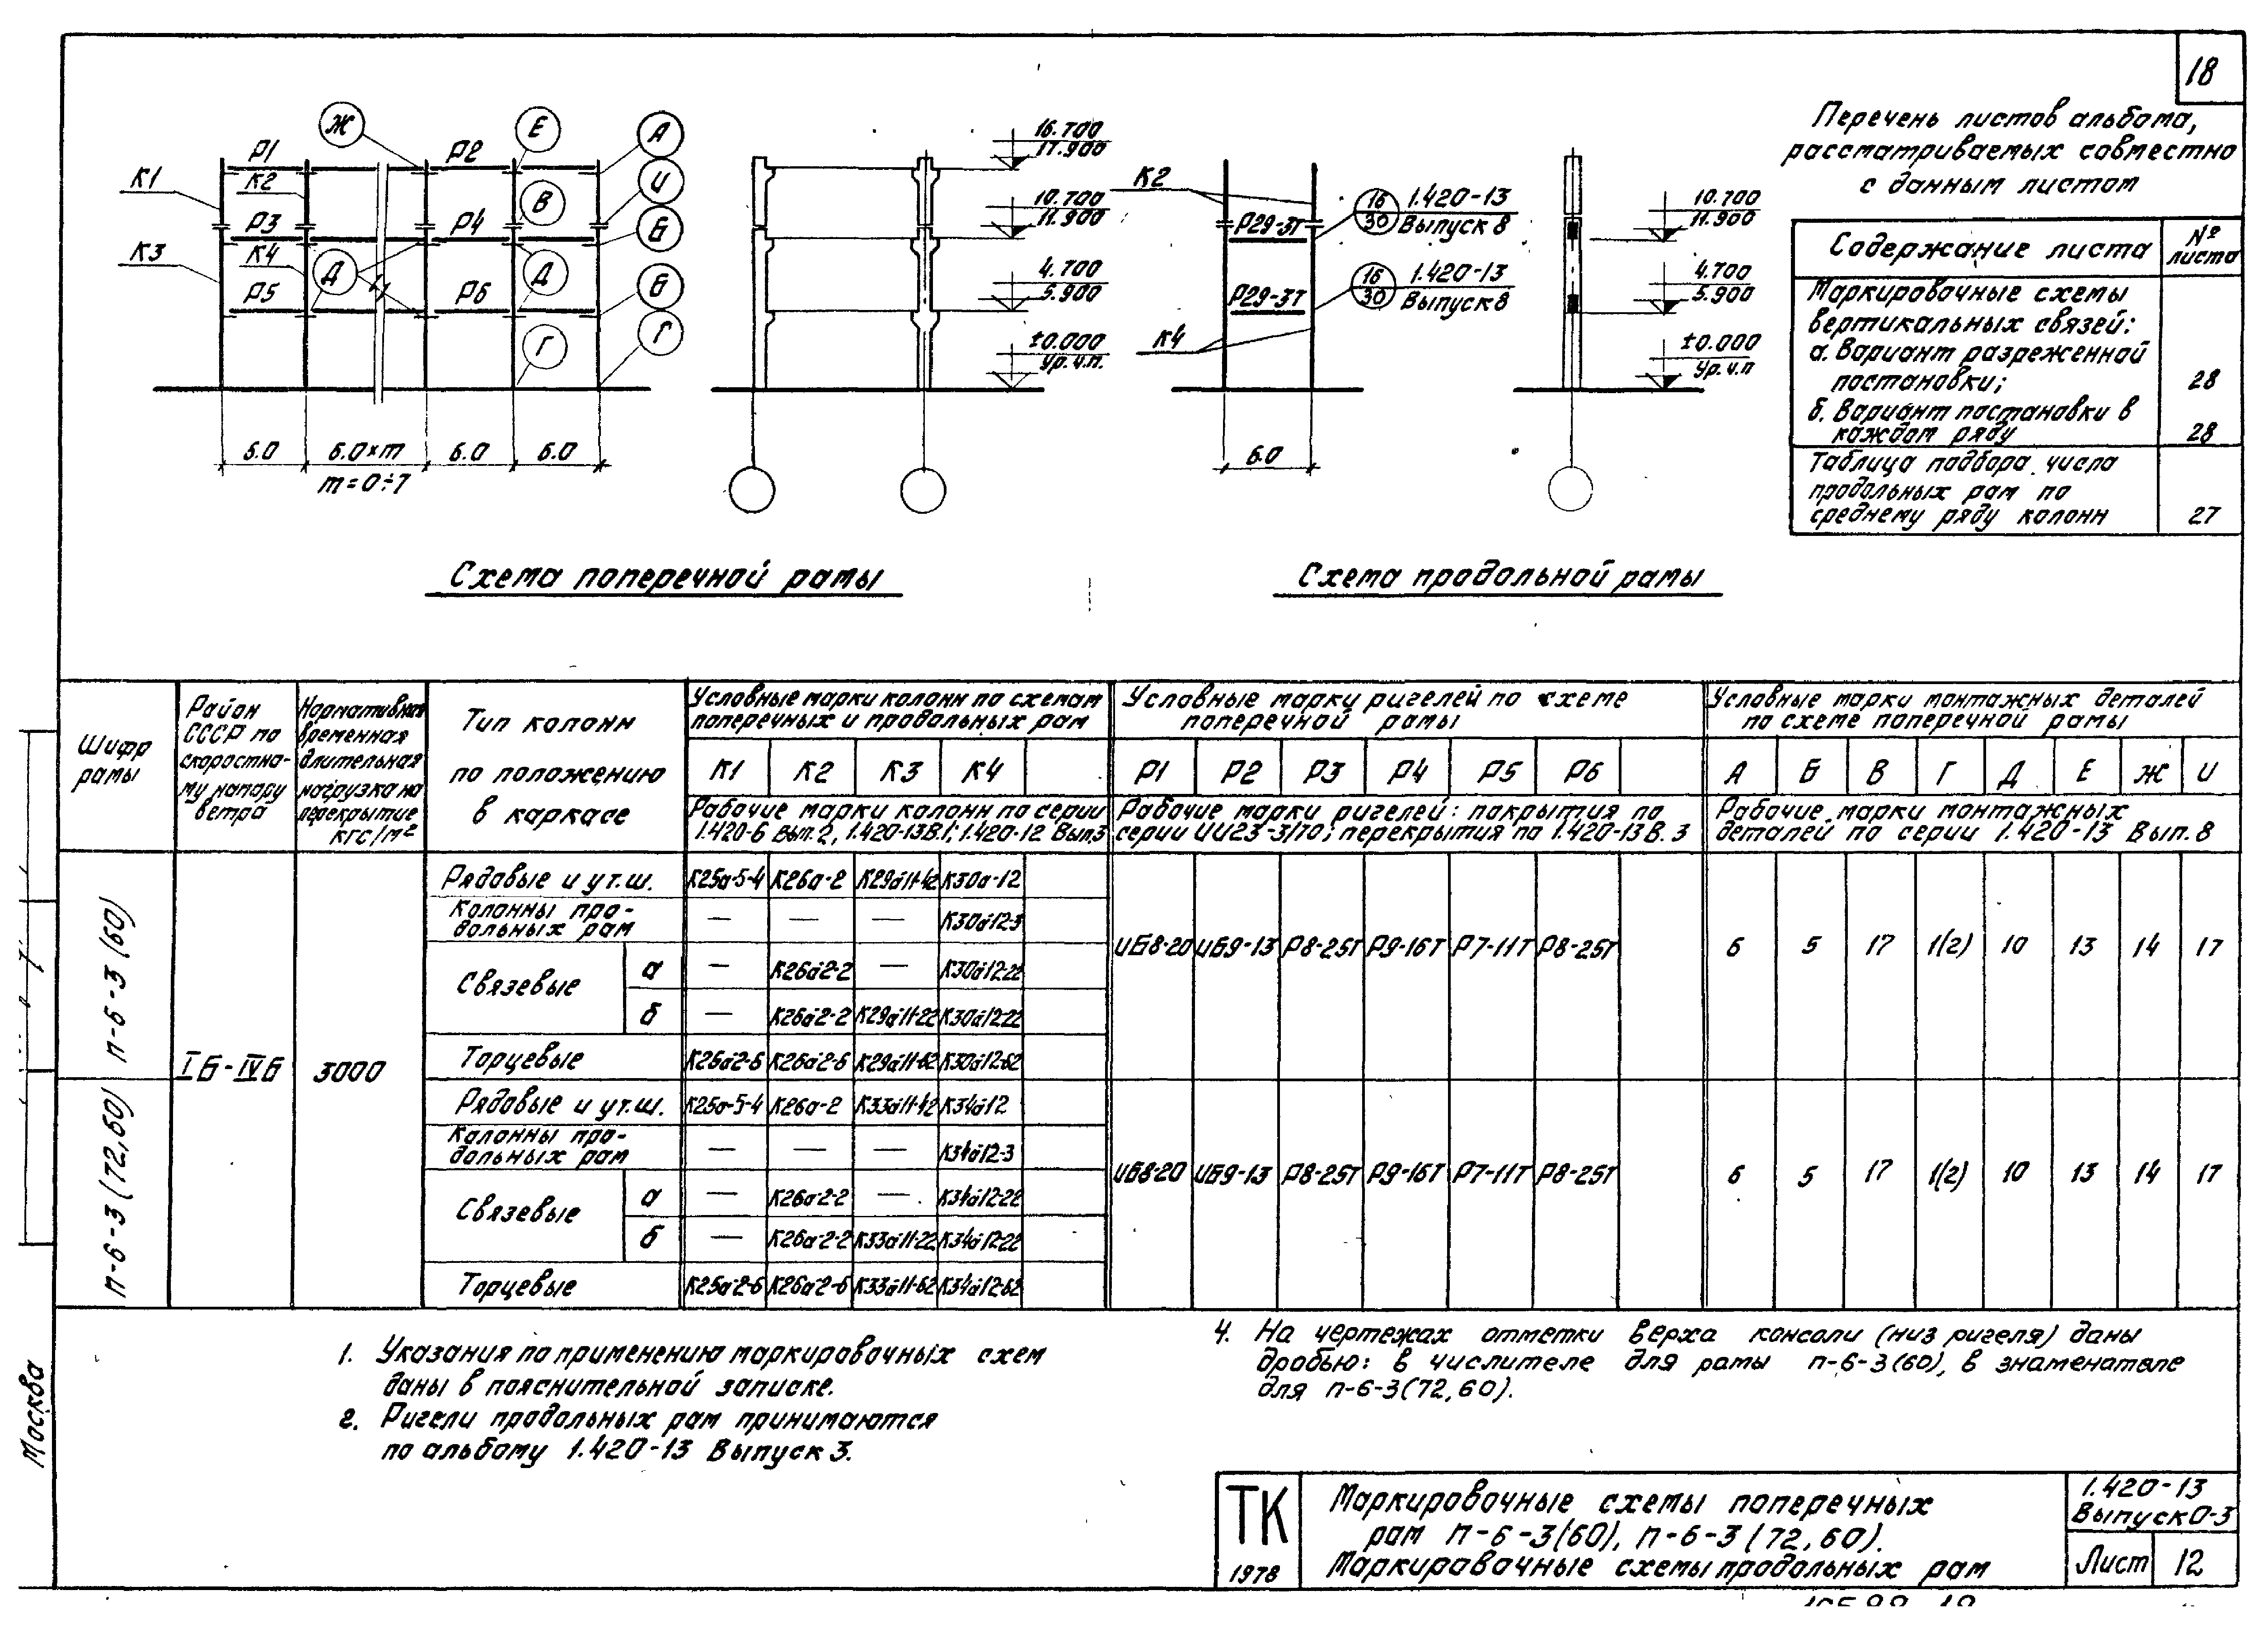 18
Ж
Е
А
И
В
Б
Д
Д
Б
Г
Г
Р1
Р2
К1
К2
Р3
Р4
К3
К4
Р5
Р6
6.0
6.0×m
6.0
6.0
m=0÷7
16.700
17.900
10.700
11.900
4.700
5.900
±0.000
Ур.ч.п.
К2
Р29-3т
Р29-3т
К4
16
30
1.420-13
Выпуск 8
16
30
1.420-13
Выпуск 8
6.0
10.700
11.900
4.700
5.900
±0.000
Ур.ч.п
Схема поперечной рамы
Схема продольной рамы
Перечень листов альбома,
рассматриваемых совместно
с данным листом
Содержание листа
№
листа
Маркировочные схемы
вертикальных связей:
а. Вариант разреженной
постановки;
28
б. Вариант постановки в
каждом ряду
28
Таблица подбора числа
продольных рам по
среднему ряду колонн
27
Шифр
рамы
Район
СССР по
скоростно-
му напору
ветра
Нормативная
временная
длительная
нагрузка на
перекрытие
кгс/м²
Тип колонн
по положению
в каркасе
Условные марки колонн по схемам
поперечных и продольных рам
К1 К2 К3 К4
Рабочие марки колонн по серии
1.420-6 вып.2, 1.420-13В.1; 1.420-12 Вып.3
Условные марки ригелей по схеме
поперечной рамы
Р1 Р2 Р3 Р4 Р5 Р6
Рабочие марки ригелей: покрытия по
серии ИИ23-3/70; перекрытия по 1.420-13 В.3
Условные марки монтажных деталей
по схеме поперечной рамы
А Б В Г Д Е Ж И
Рабочие марки монтажных
деталей по серии 1.420-13 Вып. 8
п-6-3 (60)
IБ-IVБ
3000
Рядовые и у т.ш. К25а-5-4 К26а-2 К29а11-42 К30а-12
Колонны про-
дольных рам — — — К30а12-3
Связевые
а — К26а2-2 — К30а12-22
б — К26а2-2 К29а11-22 К30а12-22
Торцевые К26а2-6 К26а2-6 К29а11-62 К30а12-62
ИБ8-20 ИБ9-13 Р8-25т Р9-16т Р7-11т Р8-25т
6 5 17 1(2) 10 13 14 17
п-6-3 (72,60)
Рядовые и у т.ш. К25а-5-4 К26а-2 К33а11-42 К34а12
Колонны про-
дольных рам — — — К34а12-3
Связевые
а — К26а-2-2 — К34а12-22
б — К26а-2-2 К33а11-22 К34а12-22
Торцевые К25а-2-6 К26а2-6 К33а11-62 К34а12-62
ИБ8-20 ИБ9-13 Р8-25т Р9-16т Р7-11т Р8-25т
6 5 17 1(2) 10 13 14 17
1. Указания по применению маркировочных схем
даны в пояснительной записке.
2. Ригели продольных рам принимаются
по альбому 1.420-13 Выпуск 3.
4. На чертежах отметки верха консоли (низ ригеля) даны
дробью: в числителе для рамы п-6-3(60), в знаменателе
для п-6-3(72,60).
Москва
ТК
1978
Маркировочные схемы поперечных
рам п-6-3(60), п-6-3(72,60).
Маркировочные схемы продольных рам
1.420-13
Выпуск 0-3
Лист 12